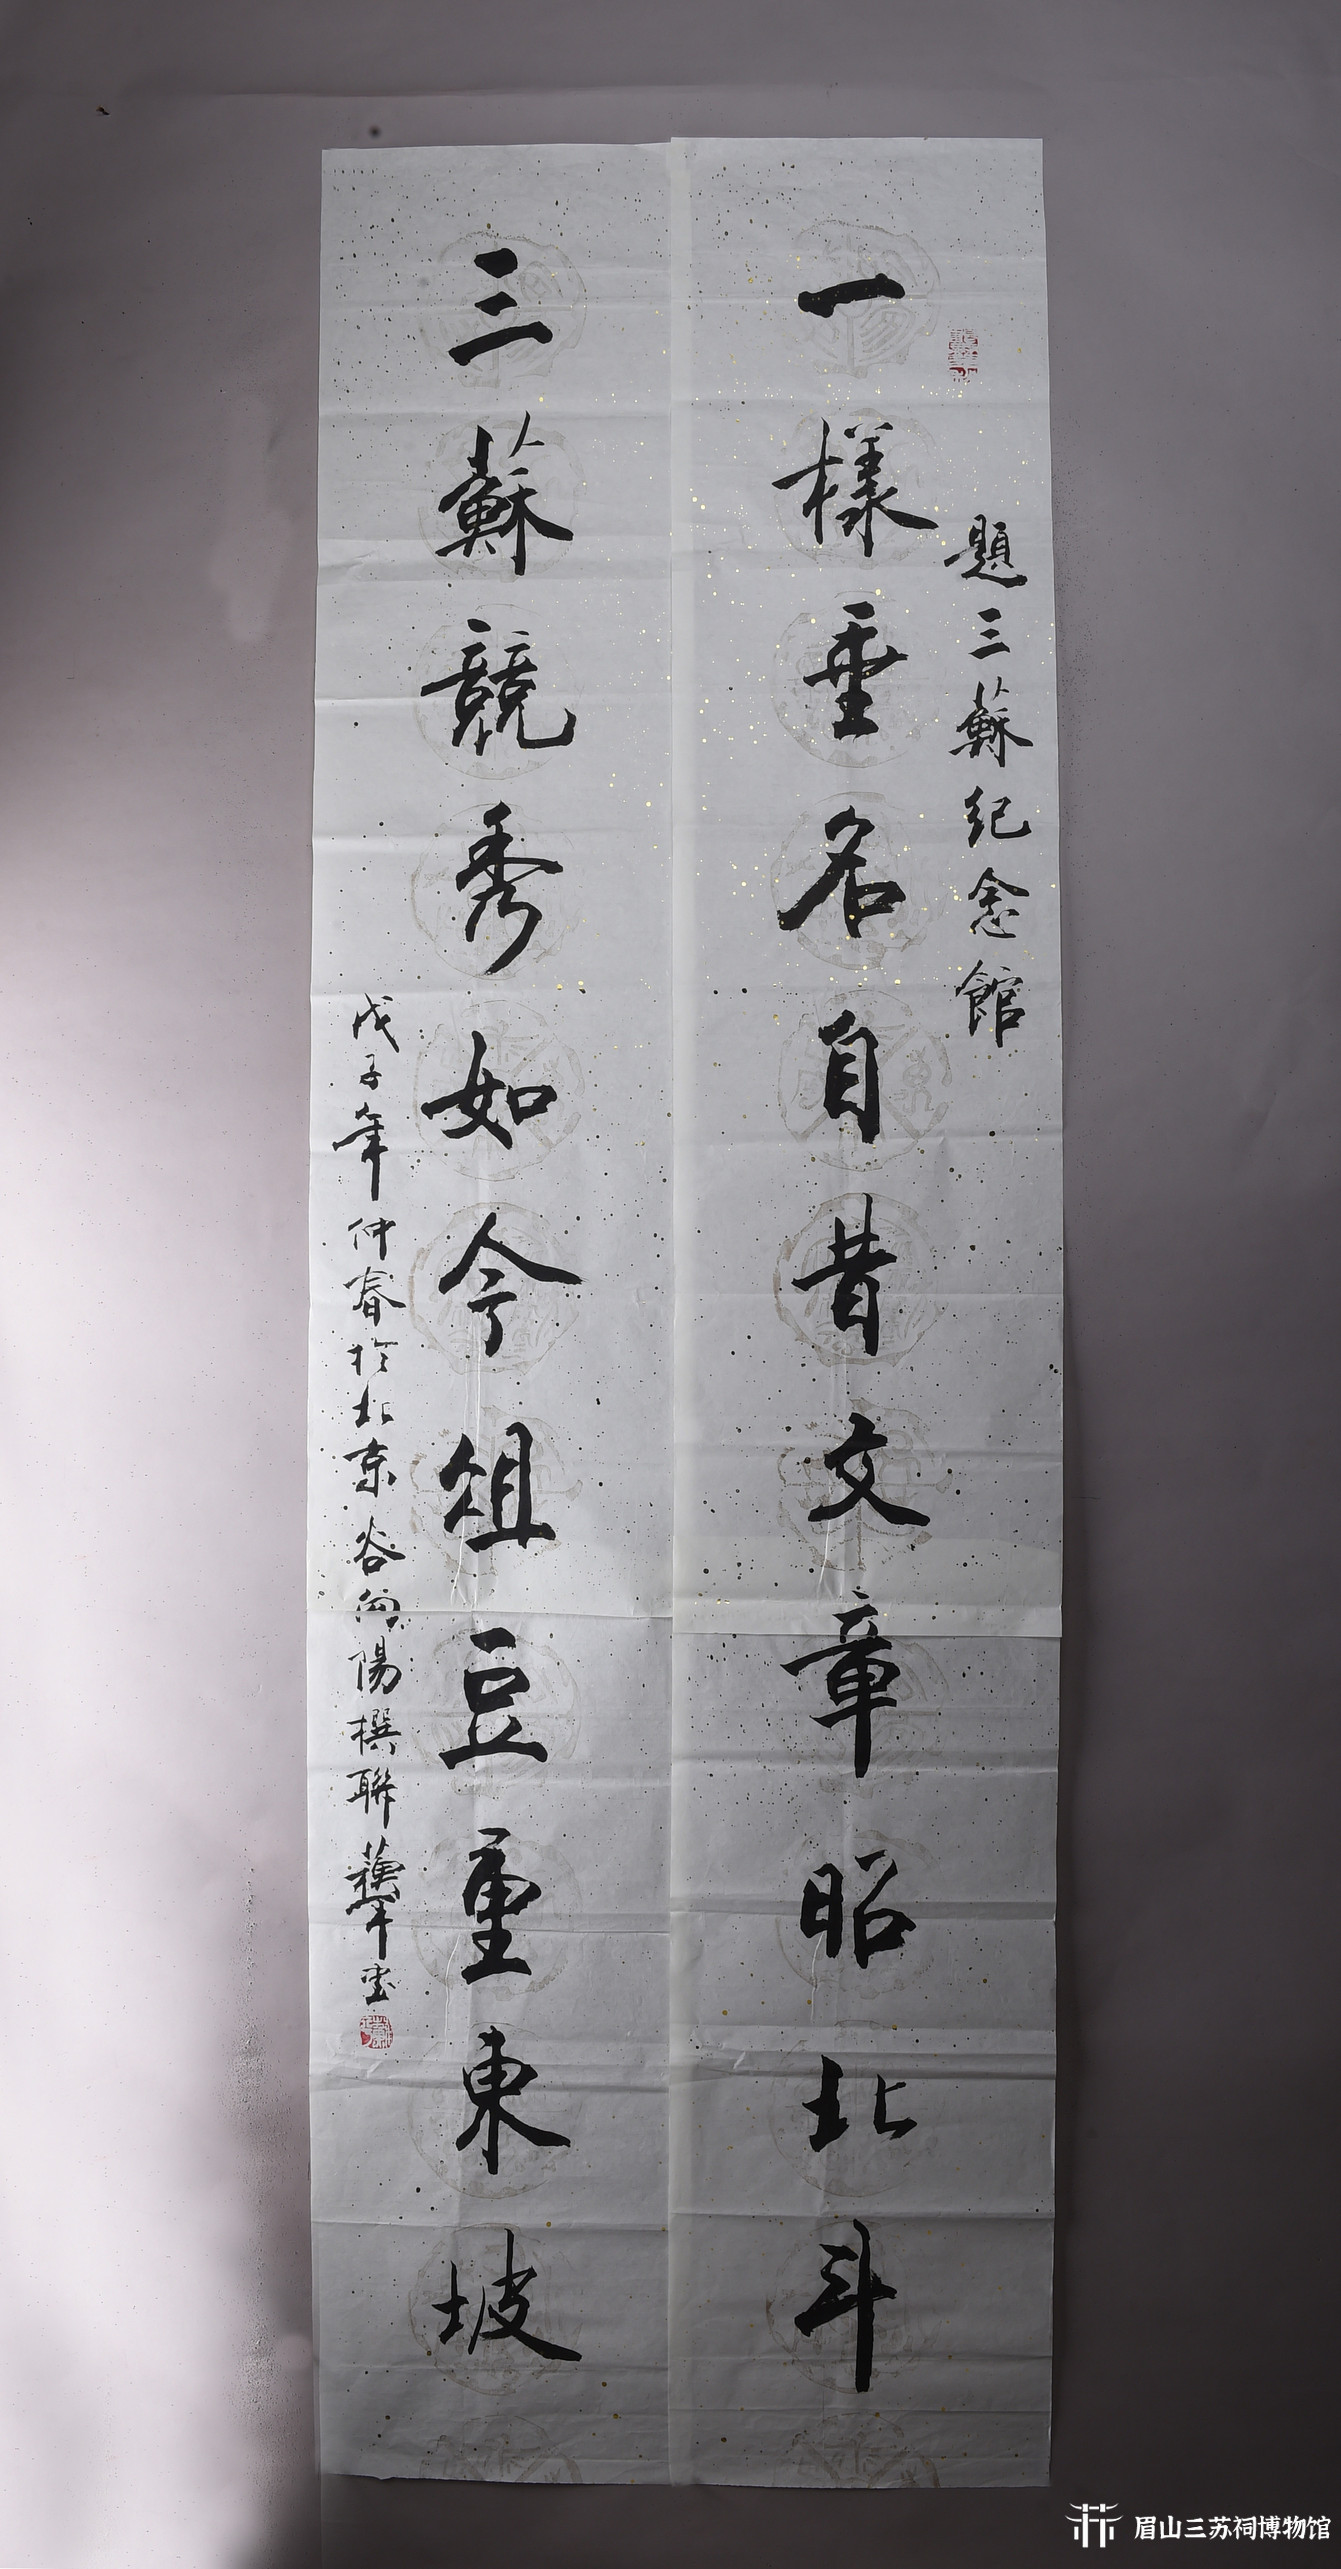 題三蘇纪念館
一樣垂名自昔文章昭北斗
三蘇競秀如今俎豆重東坡
戊子年仲春於北京谷向陽撰聯
眉山三苏祠博物馆